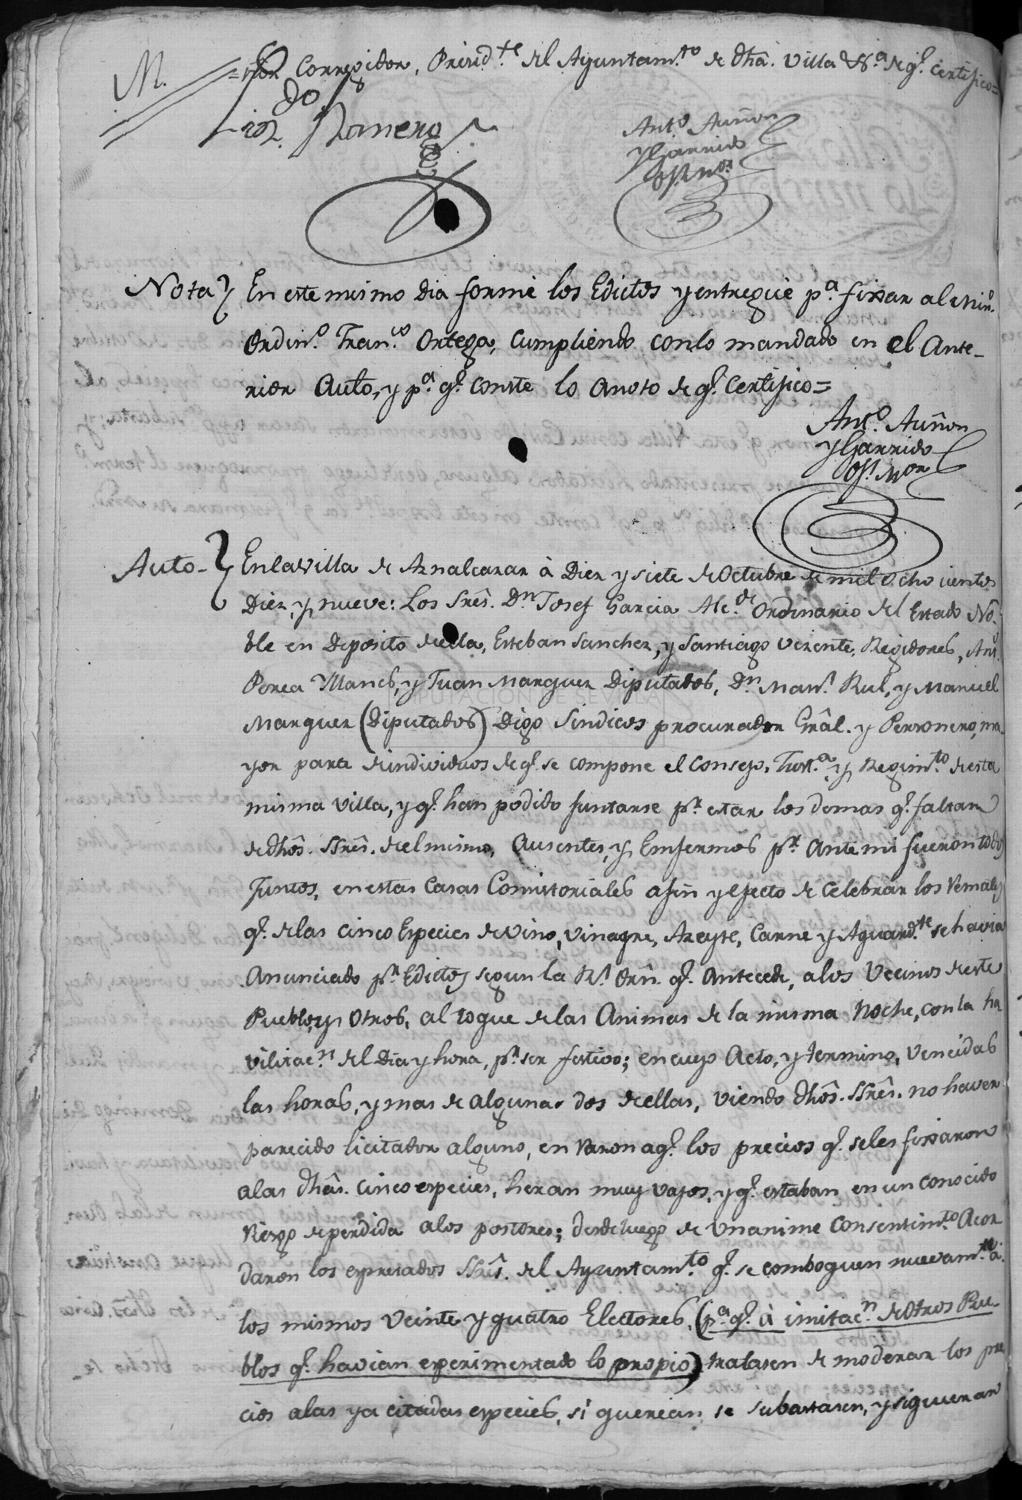 M. = Sor Corregidor, Presid.te del Ayuntam.to de dha. villa &.a de q.e certifico=
D.o
Romero
Ant.o Auñon
y Garrido
Nota} En este mismo dia formé los Edictos y entregue p.a fixar al Min.o
Ordin.o Fran.co Ortega, Cumpliendo con lo mandado en el Ante-
rior Auto, y p.a q.e conste lo anoto de q.e Certifico=
Ant.o Auñon
y Garrido
Auto-} En la villa de Aznalcazar à Diez y siete de Octubre de mil ocho cientos
Diez y nueve: Los Srês. D.n Josef Garcia Alc.de Ordinario del Estado No-
ble en Deposito de ella, Esteban Sanchez, y Santiago Vicente, Regidores, Ant.o
Perea Yllanes, y Juan Marquez Diputados, D.n Man.l Rul, y Manuel
Marquez (Diputados) Digo Sindicos procurador Grâl. y Personero, ma-
yor parte de individuos de q.e se compone el Consejo, Just.a y Regim.to de esta
misma villa, y q.e han podido juntarse p.r estar los demas q.e faltan
de dhôs. SSrês. del mismo, Ausentes, y Enfermos p.r Ante mi fueron todos
Juntos, en estas Casas Consistoriales a fin y efecto de Celebrar los Remates
q.e de las cinco Especies de vino, vinagre, Azeyte, Carne y Aguard.te se havia
Anunciado p.r Edictos segun la R.l Orn̂. q.e Antecede, a los Vecinos de este
Pueblo y Otros, al toque de las Animas de la misma Noche, con la ha
vilitac.n del Dia y hora, p.r ser festivo; en cuyo Acto, y termino, vencidas
las horas, y mas de algunas dos de ellas, viendo dhôs. SSrês. no haver
parecido licitador alguno, en razon a q.e los precios q.e se les fixaron
a las dhâs. cinco especies, heran muy vajos, y q.e estaban en un conocido
Riesgo de perdida a los postores; desde luego de Unanime consentim.to Acor
daron los expresados SSrês. del Ayuntam.to q.e se comboquen nuevam.te à
los mismos veinte y quatro Electores, (p.a q.e à imitac.n de Otros Pue-
blos q.e havian experimentado lo propio) tratasen de moderar los pre
cios a las ya citadas especies, si querian se subastasen, y siguieran